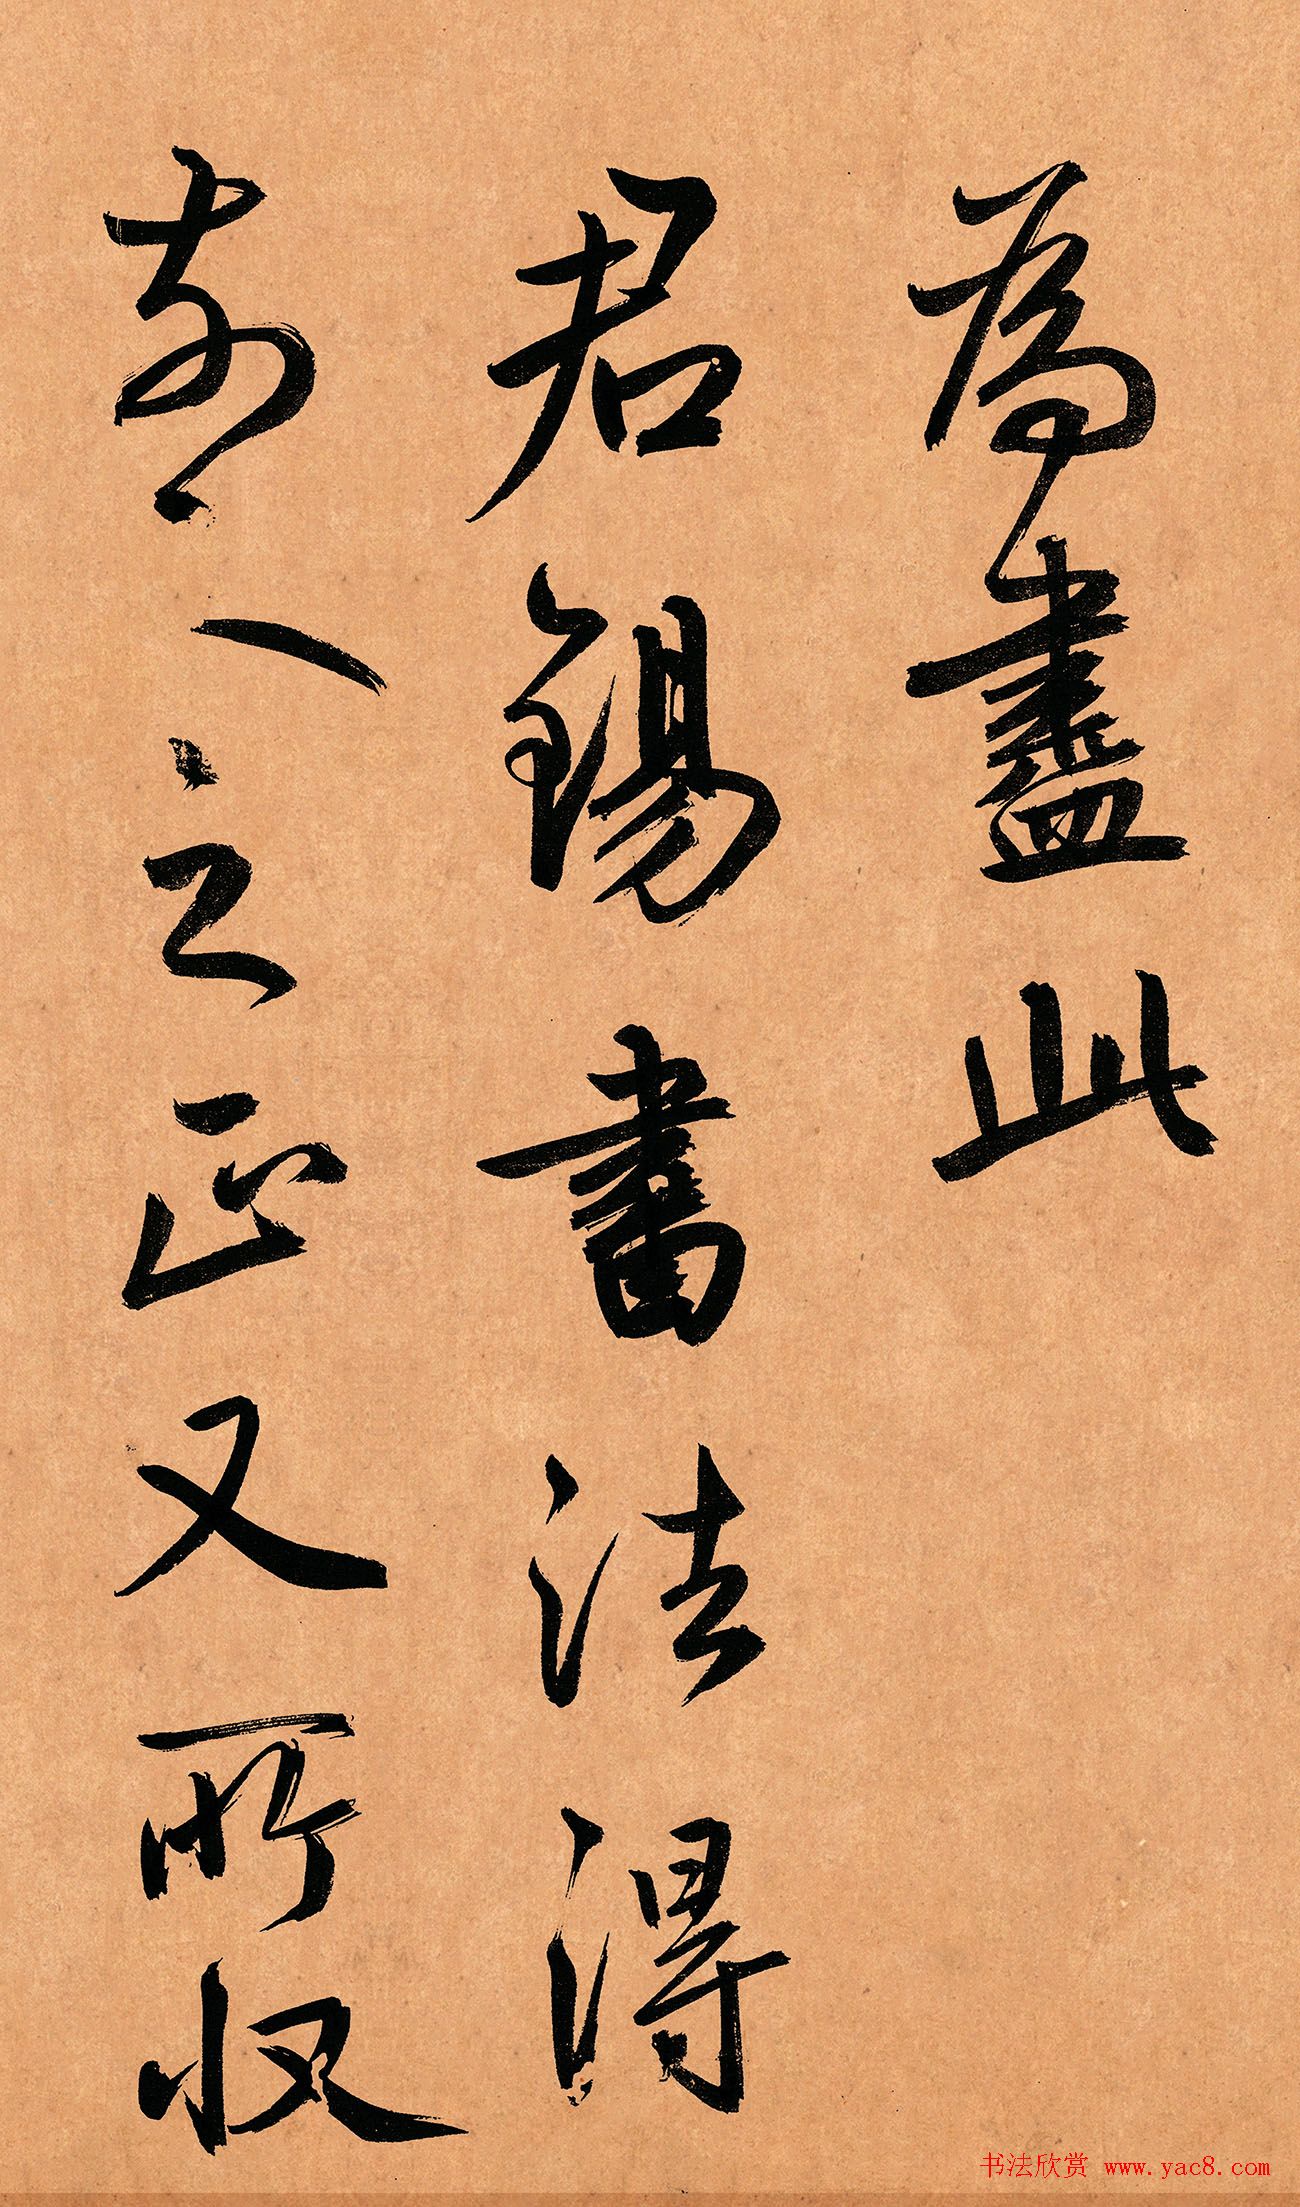 為盡此
君錫書法得
前人之正又所收
书法欣赏 www.yac8.com